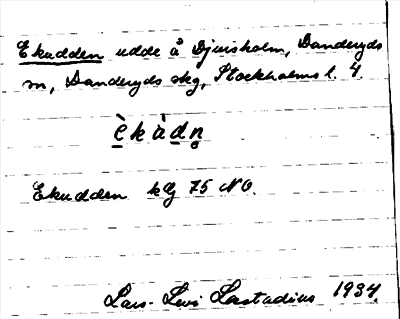 Ekudden udde å Djursholm, Danderyds
sn, Danderyds skg, Stockholms l. 4
è̱kàḏn̥
Ekudden kbl 75 NO.
Lars-Levi Læstadius 1934.